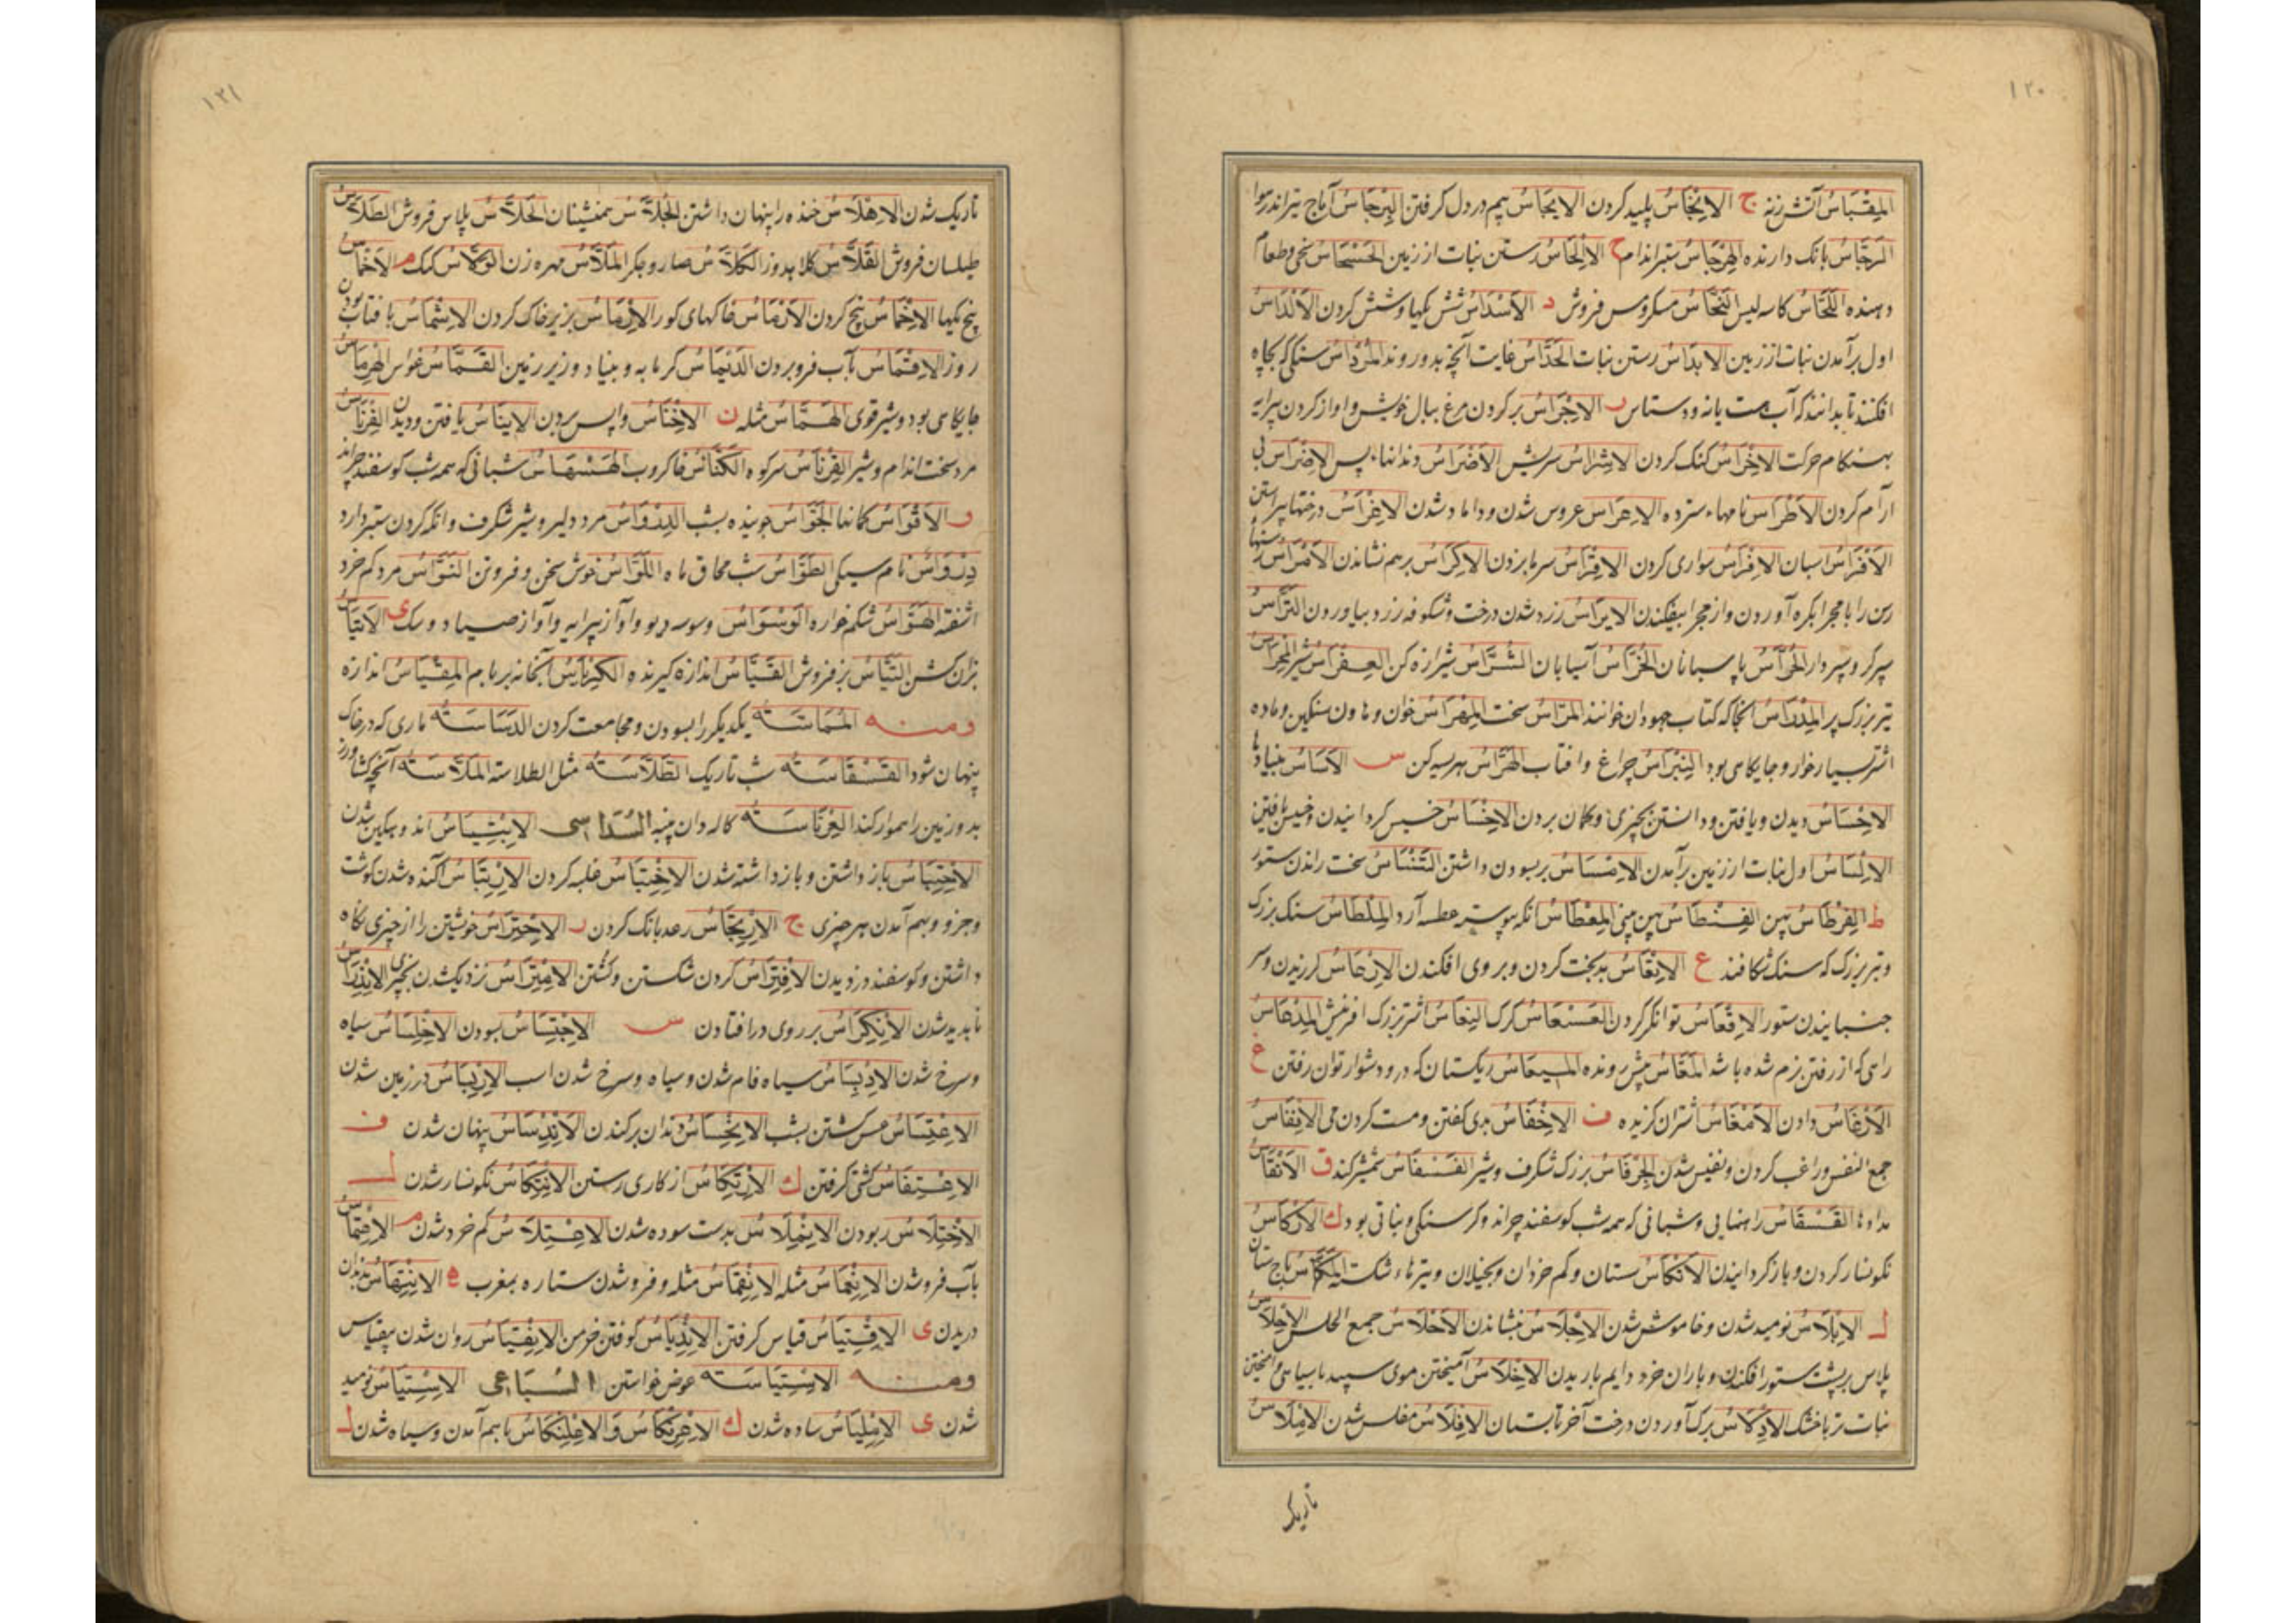 ١٢٠
المِقْبَاسُ آتش زنه ج الاِنْجَاسُ پلید کردن الاِیجَاسُ بیم در دل گرفتن البِرْجَاسُ آماج تیر اندر هوا
المِرجَاسُ بانک دارنده الهِرْجَاسُ ستبر اندام ح الاِلْحَاسُ رستن نبات از زمین الحَسْحَاسُ سخی و طعام
دهنده اللَّحَّاسُ کاسه لیس النَّحَّاسُ مسکر و مس فروش د الاَسْدَاسُ شش یکها و شش کردن الاَلْدَاسُ
اول برآمدن نبات از زمین الاِبدَاسُ رستن نبات الحَدَّاسُ غایت آنچه بدو روند المِرْدَاسُ سنگی که بچاه
افکنند تا بدانند که آب هست یا نه و دستاس ر الاِجْرَاسُ بر کردن مرغ ببال خویش و آواز کردن پیرایه
بهنکام حرکت الاِخْرَاسُ کنک کردن الاِشْرَاسُ سریش الاَضْرَاسُ دندانها پس الاِضْرَاسُ بی
آرام کردن الاَطْرَاسُ نامهاء سترده الاِعْرَاسُ عروس شدن و داماد شدن الاِغْرَاسُ درختها پیراستن
الاَفْرَاسُ اسبان الاِفْرَاسُ سواری کردن الاِقْرَاسُ سرما بردن الاِکْرَاسُ بر هم نشاندن الاَمْرَاسُ رسنها
رسن را با مجرا بکره آوردن و از مجرا بیفکندن الاِیرَاسُ زرد شدن درخت و شکوفه زرد بیاوردن التَّرَّاسُ
سپرکر و سپردار الحُرَّاسُ پاسبانان الخَرَّاسُ آسیابان الشَّرَّاسُ شیرازه کن العِفْرَاسُ شیر
تیر بزرک پر المِدْرَاسُ انجا که کتاب جهودان خوانند المِرَاسُ سخت المِهْرَاسُ خوان و هاون سنکین و ماده
اشتر بسیار خوار و جایکاهی بود النِبْرَاسُ چراغ و آفتاب الهَرَّاسُ هریسه کن س الاَسَاسُ بنیادها
الاِحْسَاسُ دیدن و یافتن و دانستن بچیزی و کمان بردن الاِخْسَاسُ خسیس کردانیدن و خسیس یافتن
الاِلْسَاسُ اول نبات از زمین برآمدن الاِمْسَاسُ بر بسودن داشتن التَّنْسَاسُ سخت راندن ستور
ط الفِرْطَاسُ پهن الفِنْطَاسُ پهن بینی المِعْطَاسُ انکه پیوسته عطسه آرد المِلْطَاسُ سنک بزرک
و تیر بزرک که سنک شکافند ع الاِتْعَاسُ بدبخت کردن و بر روی افکندن الاِرْعَاسُ لرزیدن و سر
جنبانیدن ستور الاِقْعَاسُ توانکر کردن العَسْعَاسُ کرک النِعَاسُ اشتر بزرک آفرینش المِدْعَاسُ
راهی که از رفتن نرم شده باشد المَعَّاسُ پیش رونده المِیعَاسُ ریکستان که درو دشوار توان رفتن غ
الاَرْغَاسُ دادن الاَمْغَاسُ اشتران کزیده ف الاِخْفَاسُ بدی کفتن و مست کردن می الاِنْفَاسُ
جمع النفس و راغب کردن و نفیس شدن الجِرْفَاسُ بزرک شکرف و شیر الفَسْفَاسُ شمشیر کند ق الاَنْقَاسُ
مدادها القَسْقَاسُ راهنمایی و شبانی که همه شب کوسفند چراند و کرسنکی و نباتی بود ك الاِرْکَاسُ
نکونسار کردن و باز کردانیدن الاَنْکَاسُ سستان و کم خردان و بخیلان و تیرهاء شکسته المَکَّاسُ باج ستان
ل الاِبْلَاسُ نومید شدن و خاموش شدن الاِجْلَاسُ بنشاندن الاَحْلَاسُ جمع الحلس الاِحْلَاسُ
پلاس بر پشت ستور افکندن و باران خرد دایم باریدن الاِخْلَاسُ آمیختن موی سپید با سیاهی و آمیختن
نبات تر با خشک الاِدْلَاسُ برک آوردن درخت آخر تابستان الاِفْلَاسُ مفلس شدن الاِمْلَاسُ
تاریک
١٢١
تاریک شدن الاِهْلَاسُ خنده را پنهان داشتن الجُلَّاسُ همنشینان الحَلَّاسُ پلاس فروش الطَّلَّاسُ
طیلسان فروش القَلَّاسُ کلاه دوز الکَلَّاسُ صاروجکر المَلَّاسُ مهره زن م الاَخْمَاسُ
پنج یکها الاِخْمَاسُ پنج کردن الاَرْمَاسُ خاکهای کور الاِرْمَاسُ بزیر خاک کردن الاِشْمَاسُ با آفتاب بودن
روز الاِقْمَاسُ بآب فرو بردن الدِّیْمَاسُ کرمابه و بنیاد و زیر زمین القَمَّاسُ غواص الهِرْمَاسُ
جایکاهی بود و شیر قوی الهَمَّاسُ مثله ن الاِخْنَاسُ واپس بردن الاِینَاسُ یافتن و دیدن الفِرْنَاسُ
مرد سخت اندام و شیر القِرْنَاسُ سرکوه الکَنَّاسُ خاکروب الهَسْهَاسُ شبانی که همه شب کوسفند چراند
و الاَقْوَاسُ کمانها الجَوَّاسُ جوینده بشب الدِّرْوَاسُ مرد دلیر و شیر شکرف و انکه کردن ستبر دارد
دِرْوَاسُ نام سیکی الطَوَّاسُ شب محاق ماه اللَوَّاسُ خوش سخن و فروتن النَوَّاسُ مردکم خرد
آشفته الهَوَّاسُ شکم خواره الوَسْوَاسُ وسوسه دیو و آواز پیرایه و آواز صیاد و سک ی الاَتیَاسُ
بزان کشن التَّیَّاسُ بز فروش القَیَّاسُ اندازه کیرنده الکِرْیَاسُ آبخانه بر بام المِقْیَاسُ اندازه
ومنه المُمَاسَّةُ یکدیکر را بسودن و مجامعت کردن الدَسَّاسَةُ ماری که در خاک
پنهان شود القَسْقَاسَةُ شب تاریک الطَلَّاسَةُ مثل الطلاسة المَلَّاسَةُ آنچه کشاورز
بدو زمین را هموار کند العِرْنَاسَةُ کاله دان پنبه السُدَاسی الاِبْتِیَاسُ اندوهکین شدن
الاِحْتِبَاسُ باز داشتن و باز داشته شدن الاِخْتِبَاسُ غلبه کردن الاِرْتِبَاسُ آکنده شدن کوشت
و جز و بهم آمدن هر چیزی ج الاِرْتِجَاسُ رعد بانک کردن ر الاِحْتِرَاسُ خویشتن را از چیزی نکاه
داشتن و کوسفند دزدیدن الاِفْتِرَاسُ کردن شکستن و کشتن الاِمْتِرَاسُ نزدیک شدن بچیزی الاِنْدِرَاسُ
نابدید شدن الاِنْکِرَاسُ بر روی در افتادن س الاِجْتِسَاسُ بسودن الاِخْلِسَاسُ سیاه
و سرخ شدن الاِدْبِسَاسُ سیاه فام شدن و سیاه و سرخ شدن اسب الاِرْبِسَاسُ در زمین شدن
الاِعْتِسَاسُ عسس کشتن بشب الاِنْحِسَاسُ دندان بر کندن الاِنْدِسَاسُ پنهان شدن ف
الاِعْتِفَاسُ کشتی کرفتن ك الاِرْتِکَاسُ از کاری رستن الاِنْتِکَاسُ نکونسار شدن ل
الاِخْتِلَاسُ ربودن الاِنْمِلَاسُ بدست سوده شدن الاِهْتِلَاسُ کم خرد شدن م الاِغْتِمَاسُ
بآب فرو شدن الاِنْغِمَاسُ مثله الاِنْقِمَاسُ مثله و فرو شدن ستاره بمغرب ه الاِنْتِهَاسُ بدندان
دریدن ی الاِقْتِیَاسُ قیاس کرفتن الاِنْدِیَاسُ کوفتن خرمن الاِنْقِیَاسُ روان شدن بقیاس
ومنه الاِسْتِیَاسَةُ عوض خواستن السُبَاعی الاِسْتِیَاسُ نومید
شدن ی الاِمْلِیَاسُ ساده شدن ك الاِعْرِنْکَاسُ وَ الاِعْلِنْکَاسُ باهم آمدن و سیاه شدن ل